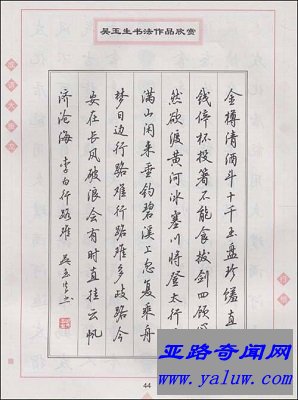 吴玉生书法作品欣赏
金樽清酒斗十千玉盘珍馐直
钱停杯投箸不能食拔剑四顾心
然欲渡黄河冰塞川将登太行
满山闲来垂钓碧溪上忽复乘舟
梦日边行路难行路难多歧路今
安在长风破浪会有时直挂云帆
济沧海 李白行路难 吴玉生书
44
亚路奇闻网
www.yaluw.com